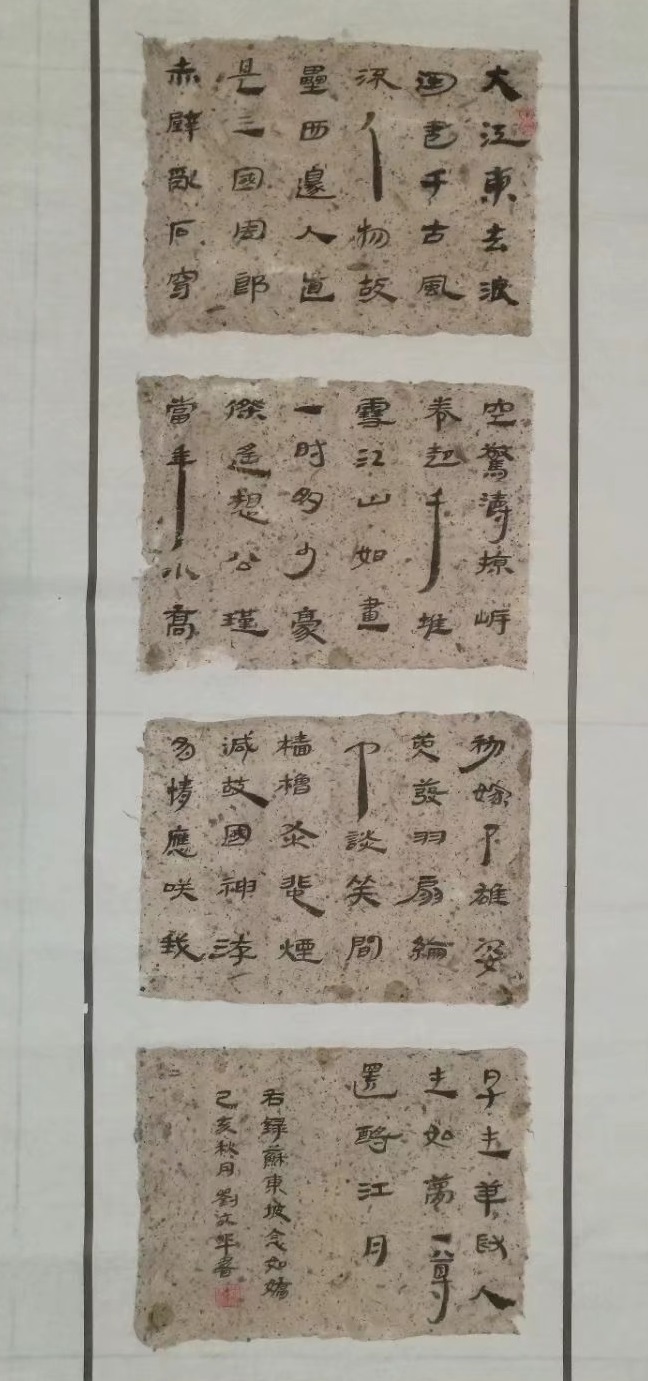 大江東去浪
淘盡千古風
流人物故
壘西邊人道
是三國周郎
赤壁亂石穿
空驚濤掠岸
卷起千堆
雪江山如畫
一时多少豪
傑遙想公瑾
當年小喬
初嫁了雄姿
英發羽扇綸
巾談笑間
檣櫓灰蜚煙
滅故國神游
多情應咲我
早生華髮人
生如夢一尊
還酹江月
右錄蘇東坡念奴嬌
己亥秋月劉書